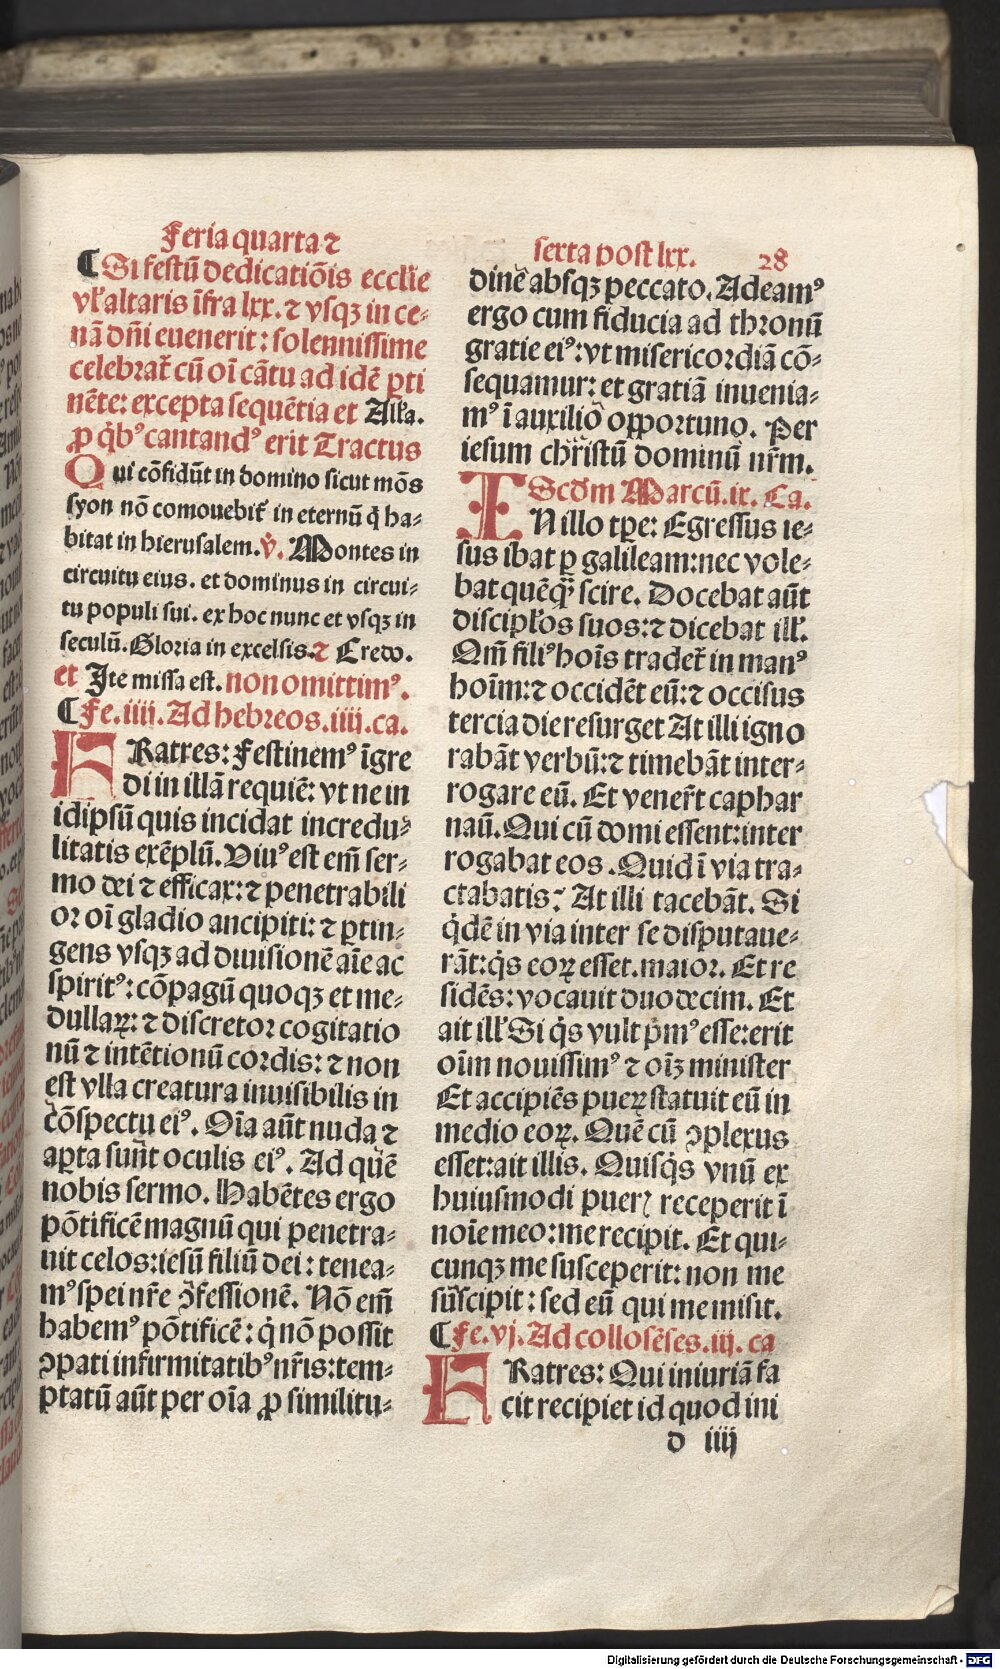 Feria quarta ⁊
¶ Si festū dedicatiōis ecclīe
vl̓ altaris īfra lxx. ⁊ vsqꝫ in ce⸗
nā dn̄i euenerit: solennissime
celebrat᷑ cū oī cātu ad idē ꝑti
nēte: excepta sequētia et All̓a.
ꝓ qͥbꝰ cantandꝰ erit Tractus
Qui cōfidūt in domino sicut mōs
syon nō comouebit᷑ in eternū qͥ ha⸗
bitat in hierusalem. ℣. Montes in
circuitu eius. et dominus in circui⸗
tu populi sui. ex hoc nunc et vsqꝫ in
seculū. Gloria in excelsis. ⁊ Credo.
et Ite missa est. non omittimꝰ.
¶ Fe. iiij. Ad hebreos. iiij. ca.
FRatres: Festinemꝰ īgre
di in illā requiē: vt ne in
idipsū quis incidat incredu⸗
litatis exēplū. Viuꝰ est em̄ ser⸗
mo dei ⁊ efficax: ⁊ penetrabili
or oī gladio ancipiti: ⁊ ꝑtin⸗
gens vsqꝫ ad diuisionē aīe ac
spiritꝰ: cōpagū quoqꝫ et me⸗
dullaꝝ: ⁊ discretor cogitatio
nū ⁊ intētionū cordis: ⁊ non
est vlla creatura inuisibilis in
cōspectu eiꝰ. Oīa aūt nuda ⁊
aꝑta sunt oculis eiꝰ. Ad quē
nobis sermo. Habētes ergo
pōtificē magnū qui penetra⸗
uit celos: iesū filiū dei: tenea⸗
mꝰ spei nr̄e ꝯfessionē. Nō em̄
habemꝰ pōtificē: qͥ nō possit
ꝯpati infirmitatibꝰ nr̄is: tem⸗
ptatū aūt per oīa ꝓ similitu⸗
sexta post lxx. 28
dinē absqꝫ peccato. Adeamꝰ
ergo cum fiducia ad thronū
gratie eiꝰ: vt misericordiā cō⸗
sequamur: et gratiā inuenia⸗
mꝰ ī auxiliō opportuno. Per
iesum christū dominū nr̄m.
Scd̄m Marcū. ix. Ca.
IN illo tꝑe: Egressus ie⸗
sus ibat ꝑ galileam: nec vole⸗
bat quēqͣꝫ scire. Docebat aūt
discipl̓os suos: ⁊ dicebat ill̓.
Qm̄ filiꝰ hoīs tradet᷑ in manꝰ
hoīm: ⁊ occidēt eū: ⁊ occisus
tercia die resurget At illi igno
rabāt verbū: ⁊ timebāt inter⸗
rogare eū. Et vener̄t caphar
naū. Qui cū domi essent: inter
rogabat eos. Quid ī via tra⸗
ctabatis? At illi tacebāt. Si
qͥdē in via inter se disputaue⸗
rāt: qͥs eoꝝ esset. maior. Et re
sidēs: vocauit duodecim. Et
ait ill̓ Si qͥs vult pͥmꝰ esse: erit
oīm nouissimꝰ ⁊ oīꝫ minister
Et accipiēs pueꝝ statuit eū in
medio eoꝝ. Quē cū ꝯplexus
esset: ait illis. Quisqͥs vnū ex
huiusmodi puerꝭ receperit ī
noīe meo: me recipit. Et qui⸗
cunqꝫ me susceperit: non me
suscipit: sed eū qui me misit.
¶ Fe. vj. Ad collosēses. iij. ca
FRatres: Qui iniuriā fa
cit recipiet id quod ini
d iiij
Digitalisierung gefördert durch die Deutsche Forschungsgemeinschaft - DFG